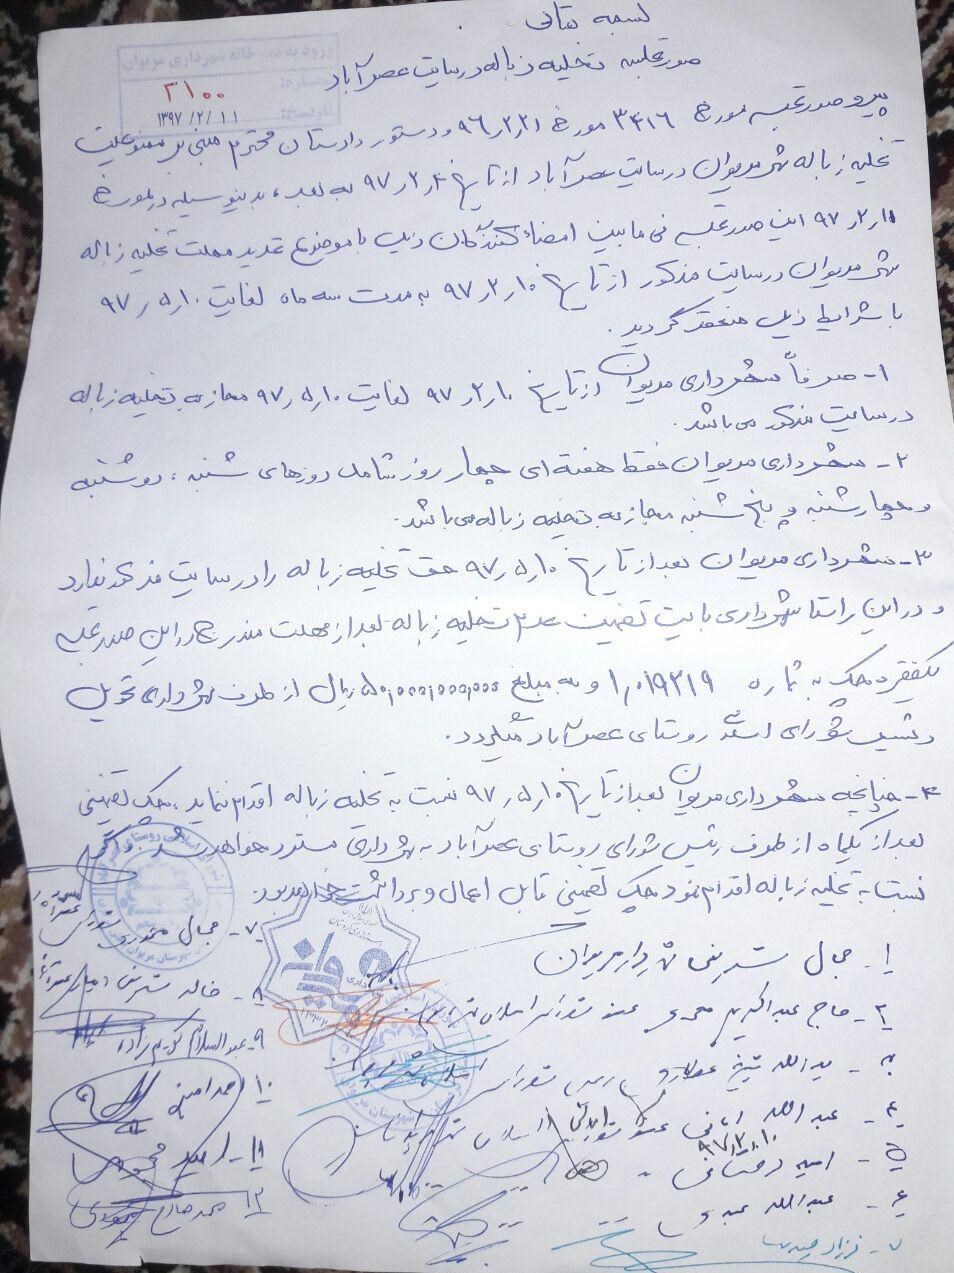 بسمه تعالی
ورود به دبیرخانه شهرداری مریوان
شماره: ۳۱۰۰
تاریخ: ۱۳۹۷/۲/۱۱
صورتجلسه تخلیه زباله در سایت عصرآباد
پیرو صورتجلسه مورخ ۳۴۱۶ مورخ ۹۶٫۲٫۲۱ و دستور دادستان محترم مبنی بر ممنوعیت
تخلیه زباله شهر مریوان در سایت عصرآباد از تاریخ ۹۷٫۲٫۴ به بعد، بدینوسیله در مورخ
۹۷٫۲٫۱۰ این صورتجلسه فی مابین امضاء کنندگان ذیل با موضوع تمدید مهلت تخلیه زباله
شهر مریوان در سایت مذکور از تاریخ ۹۷٫۲٫۱۰ به مدت سه ماه لغایت ۹۷٫۵٫۱۰
با شرایط ذیل منعقد گردید.
۱- صرفاً شهرداری مریوان از تاریخ ۹۷٫۲٫۱۰ لغایت ۹۷٫۵٫۱۰ مجاز به تخلیه زباله
در سایت مذکور می باشد.
۲- شهرداری مریوان فقط هفته ای چهار روز شامل روزهای شنبه، دوشنبه
و چهارشنبه و پنج شنبه مجاز به تخلیه زباله می باشد.
۳- شهرداری مریوان بعد از تاریخ ۹۷٫۵٫۱۰ حق تخلیه زباله را در سایت مذکور ندارد
و در این راستا شهرداری بابت تضمین عدم تخلیه زباله بعد از مهلت مندرج در این صورتجلسه
یکفقره چک به شماره و به مبلغ ۵۰,۰۰۰,۰۰۰,۰۰۰ ریال از طرف شهرداری تحویل
رئیس شورای اسلامی روستای عصرآباد میگردد.
۴- چنانچه شهرداری مریوان بعد از تاریخ ۹۷٫۵٫۱۰ نسبت به تخلیه زباله اقدام ننماید، چک تضمینی
بعد از یکماه از طرف رئیس شورای روستای عصرآباد به شهرداری مسترد خواهد شد
نسبت به تخلیه زباله اقدام نمود چک تضمینی قابل اعمال و برداشت خواهد بود.
۱- جمال شهردار مریوان
۲- حاج عبدالکریم محمدی عضو شورای اسلامی شهر
۳- یدالله شیخ رئیس شورای اسلامی شهر
۴- عبدالله عضو شورای اسلامی شهر
۹۷٫۲٫۱۰
۵- امید
۶- عبدالله عبدی
۷- فرزاد
۷- جمال محمدی
۸- خالد
۹- عبدالسلام کریم زاده
۱۰- احمد امینی
۱۱- امید محمودی
۱۲- محمد صالح محمودی